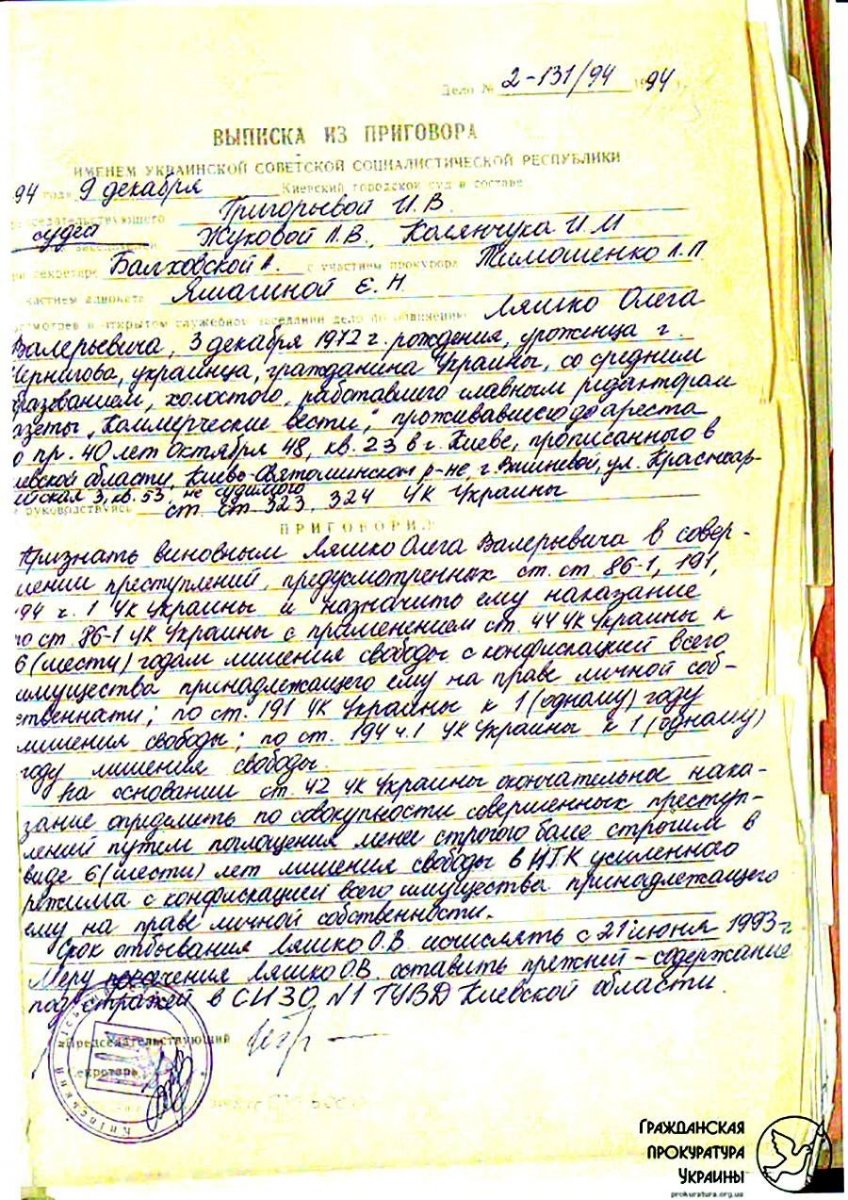 Дело № 2-131/94 1994
ВЫПИСКА ИЗ ПРИГОВОРА
ИМЕНЕМ УКРАИНСКОЙ СОВЕТСКОЙ СОЦИАЛИСТИЧЕСКОЙ РЕСПУБЛИКИ
94 года 9 декабря Киевский городской суд в составе
председательствующего Григорьевой И.В.
судга Жуковой Л.В., Колянчука И.М
секретаре Балховской А. с участием прокурора Тимошенко Л.П.
участием адвоката Яшагиной Е.Н
рассмотрев в открытом служебном заседании дело по обвинению Ляшко Олега
Валерьевича, 3 декабря 1972 г. рождения, уроженца г.
Чернигова, украинца, гражданина Украины, со средним
образованием, холостого, работавшего главным редактором
газеты „Коммерческие вести", проживавшего до ареста
по пр. 40 лет Октября 48, кв. 23 в г. Киеве, прописанного в
Киевской области, Киево-Святошинском р-не, г. Вишневой, ул. Красноар-
мейская 3, кв. 53, не судимого
руководствуясь ст. ст. 323, 324 УК Украины
ПРИГОВОРИЛ
Признать виновным Ляшко Олега Валерьевича в совер-
шении преступлений, предусмотренных ст. ст. 86-1, 191,
194 ч. 1 УК Украины и назначить ему наказание
по ст. 86-1 УК Украины с применением ст. 44 УК Украины к
6 (шести) годам лишения свободы с конфискацией всего
имущества принадлежащего ему на праве личной соб-
ственности; по ст. 191 УК Украины к 1 (одному) году
лишения свободы; по ст. 194 ч.1 УК Украины к 1 (одному)
году лишения свободы.
На основании ст. 42 УК Украины окончательное нака-
зание определить по совокупности совершенных преступ-
лений путем поглощения менее строгого более строгим в
виде 6 (шести) лет лишения свободы в ИТК усиленного
режима с конфискацией всего имущества принадлежащего
ему на праве личной собственности.
Срок отбывания Ляшко О.В. исчислять с 21 июня 1993 г
Меру пресечения Ляшко О.В. оставить прежней – содержание
под стражей в СИЗО №1 ГУВД Киевской области.
Председательствующий
Секретарь
ГРАЖДАНСКАЯ
ПРОКУРАТУРА
УКРАИНЫ
prokuratura.org.ua